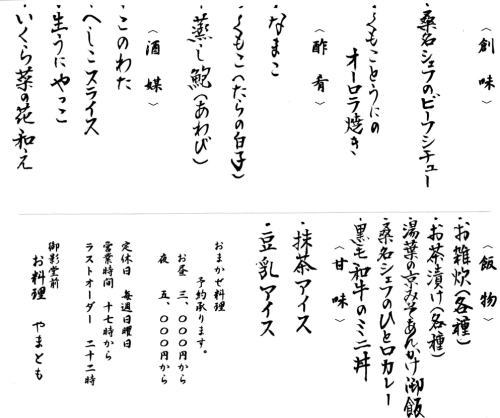 〈創味〉
・桑名シェフのビーフシチュー
・くもことうにの
オーロラ焼き
〈酢肴〉
・なまこ
・くもこ(たらの白子)
・蒸し鮑(あわび)
〈酒媒〉
・このわた
・へしこスライス
・生うにやっこ
・いくら菜の花和え
〈飯物〉
・お雑炊(各種)
・お茶漬け(各種)
・湯葉の京みそあんかけ御飯
・桑名シェフのひと口カレー
・黒毛和牛のミニ丼
〈甘味〉
・抹茶アイス
・豆乳アイス
おまかせ料理
予約承ります。
お昼 三、〇〇〇円から
夜 五、〇〇〇円から
定休日 毎週日曜日
営業時間 十七時から
ラストオーダー 二十二時
御影堂前
お料理 やまとも